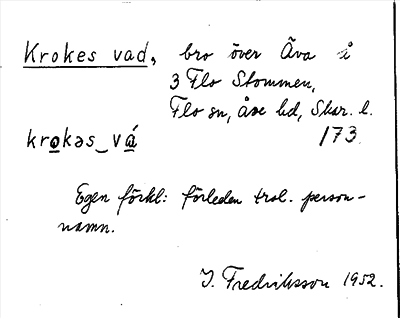 Krokes vad, bro över Äva å
3 Flo Stommen,
Flo sn, Åse hd, Skar. l.
krokəs‿vá 173
Egen förkl: förleden trol. person-
namn.
J. Fredriksson 1952.